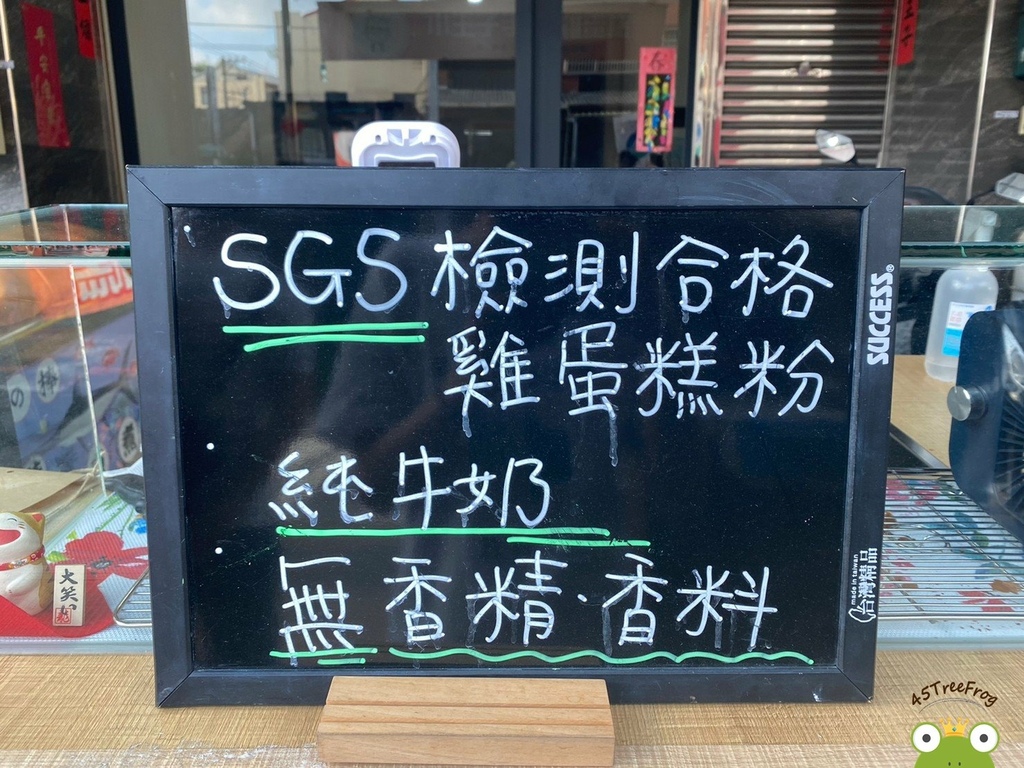 SGS 檢測合格
雞蛋糕粉
純牛奶
無香精·香料
SUCCESS®
made in taiwan
台灣精品
大笑
の
45TreeFrog